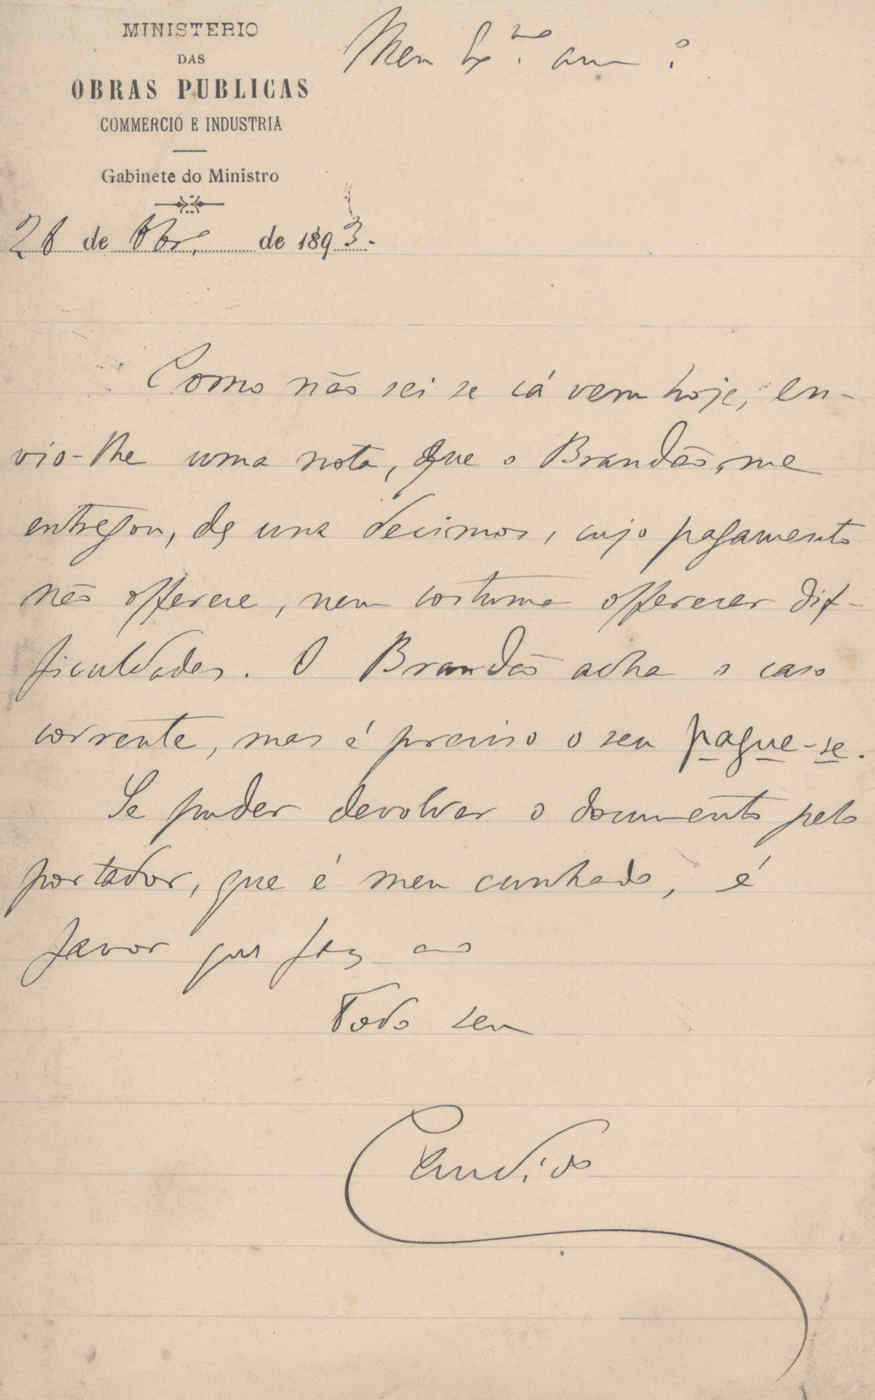 MINISTERIO
DAS
OBRAS PUBLICAS
COMMERCIO E INDUSTRIA
Gabinete do Ministro
Meu Exmo am.o
28 de 8bro de 1893.
Como não sei se cá vem hoje, en-
vio-lhe uma nota, que o Brandão me
entregou, de uns decimos, cujo pagamento
não offerece, nem costuma offerecer dif-
ficuldades. O Brandão acha o caso
corrente, mas é preciso o seu pague-se.
Se puder devolver o documento pelo
portador, que é meu cunhado, é
favor que faz ao
Todo seu
Candido